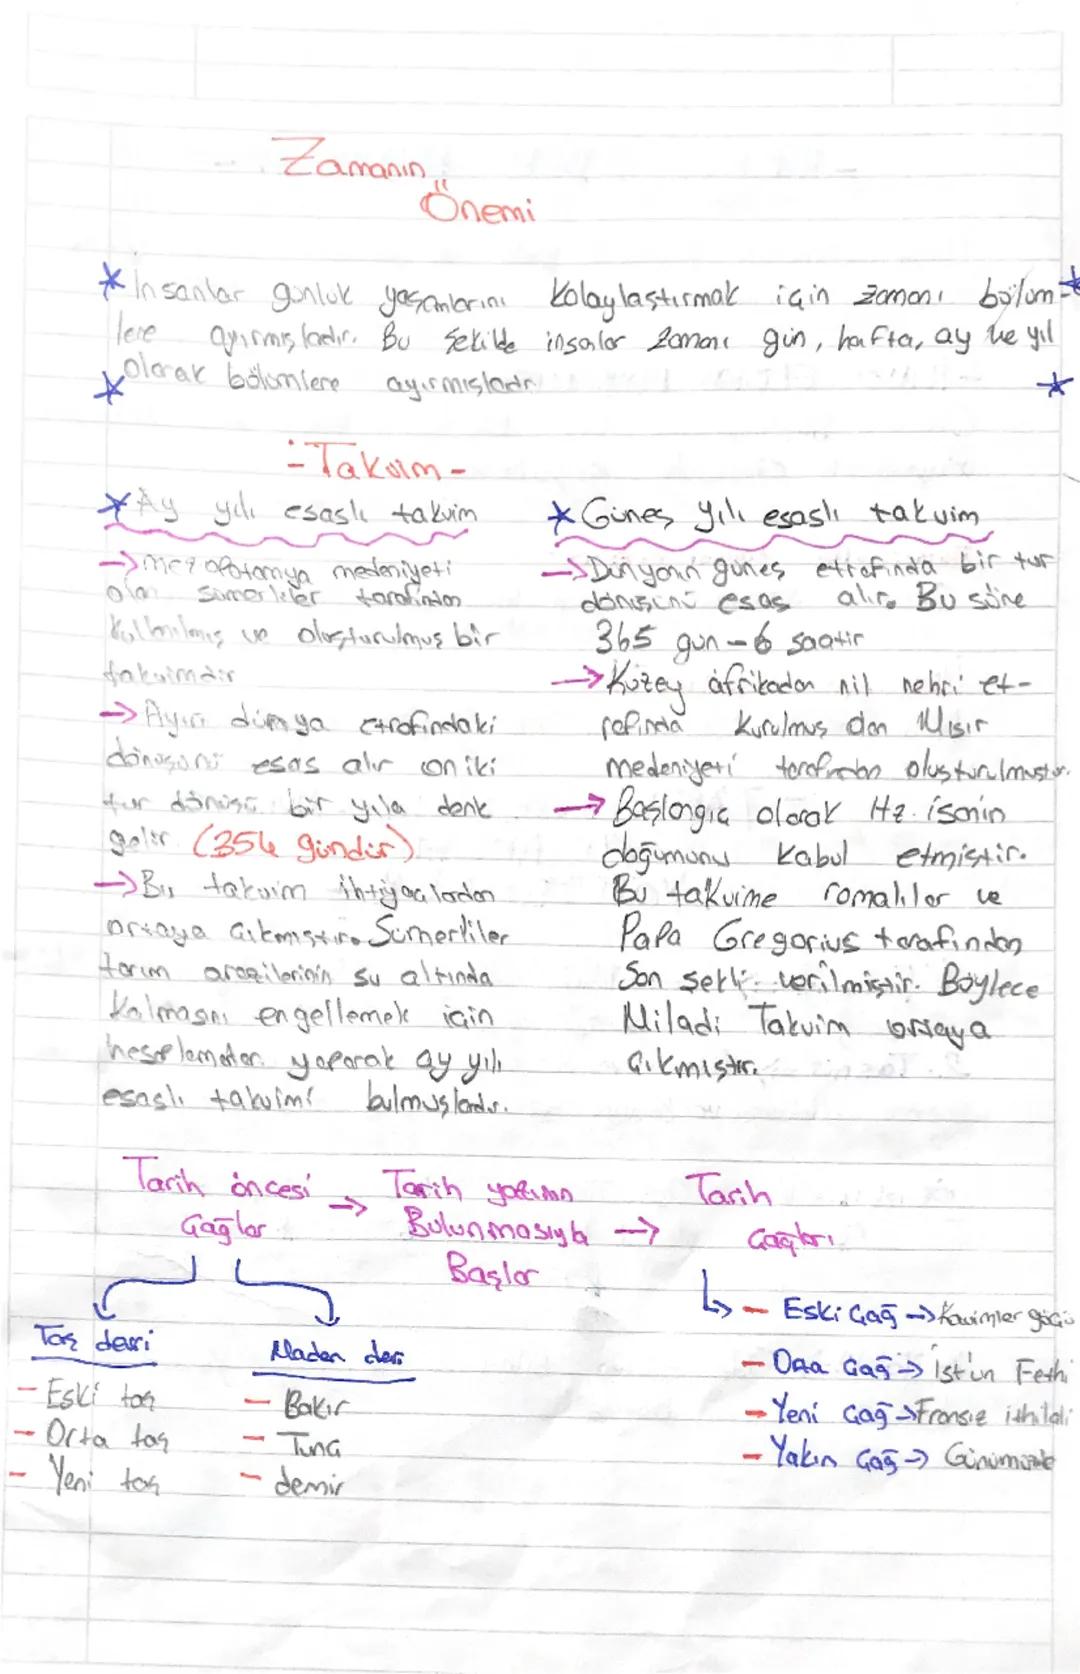 Zamanın
Önemi
İnsanlar günlük yaşamlarını kolaylaştırmak için zamanı bölüm-
lere ayırmışladır. Bu şekilde insanlar zamanı gün, hafta, ay ve yıl
olarak bölümlere ayırmışladır
- Takvim -
Ay yılı esaslı takvim
→ mezopotamya medeniyeti
olan sümerliler tarafından
kullanılmış ve oluşturulmuş bir
takvimdir
→ Ayın dünya etrafındaki
dönüşünü esas alır on iki
tur dönüşü bir yıla denk
gelir (354 gündür)
→ Bu takvim ihtiyaçlardan
ortaya çıkmıştır. Sümerliler
tarım arazilerinin su altında
kalmasını engellemek için
hesaplamalar yaparak ay yılı
esaslı takvimi bulmuşlardır.
Güneş yılı esaslı takvim
→ Dünyanın güneş etrafında bir tur
dönüşünü esas alır. Bu süre
365 gün - 6 saatir
→ Kuzey afrikadan nil nehri et-
rafında kurulmuş olan Mısır
medeniyeti tarafından oluşturulmuştur.
→ Başlangıç olarak Hz. isanın
doğumunu kabul etmiştir.
Bu takvime romalılar ve
Papa Gregorius tarafından
Son şekli verilmiştir. Böylece
Miladi Takvim ortaya
çıkmıştır.
Tarih öncesi → Tarih yazının → Tarih
Çağlar Bulunmasıyla Çağları
Başlar
Taş devri
- Eski taş
- Orta taş
- Yeni taş
Maden devri
- Bakır
- Tunç
- demir
- Eski Çağ → Kavimler göçü
- Orta Çağ → ist'un Fethi
- Yeni Çağ → Fransız ihtilali
- Yakın Çağ → Günümüzde